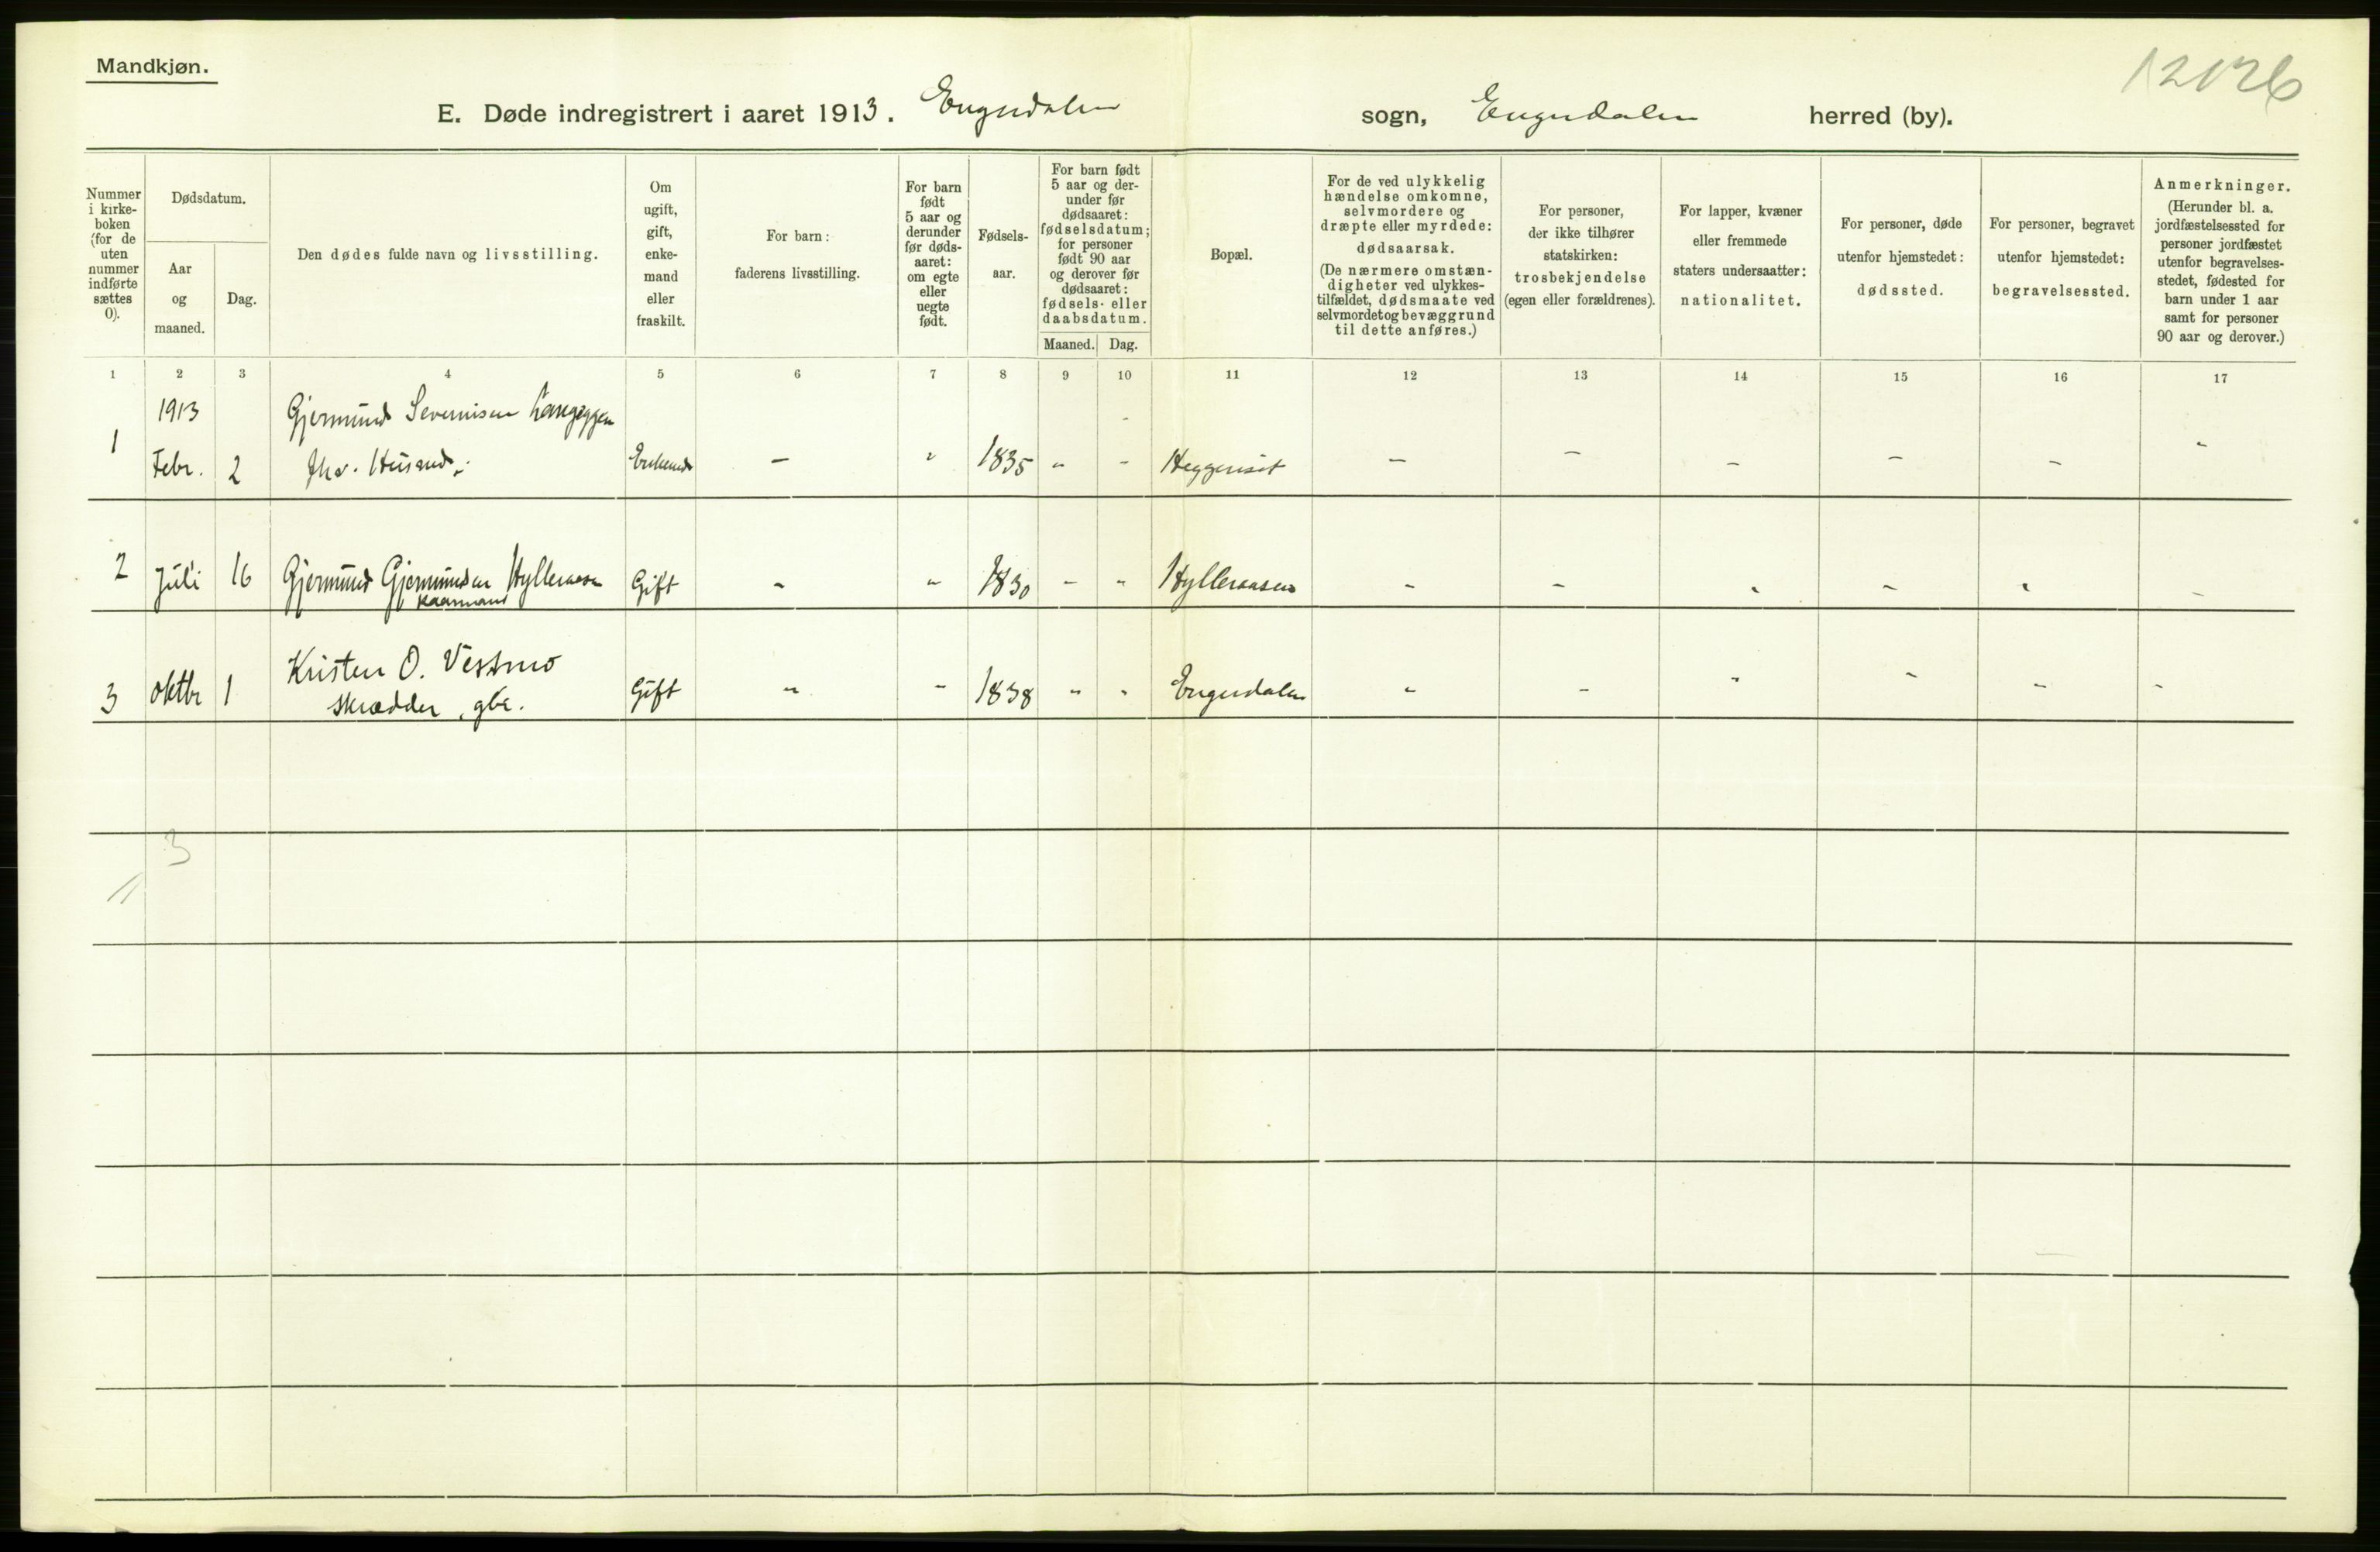 Mandkjøn.
E. Døde indregistrert i aaret 1913. Engerdalen sogn, Engerdalen herred (by).
Nummer i kirke-boken (for de uten nummer indførte sættes 0).
Dødsdatum.
Aar og maaned.
Dag.
Den dødes fulde navn og livsstilling.
Om ugift, gift, enke-mand eller fraskilt.
For barn: faderens livsstilling.
For barn født 5 aar og derunder før døds-aaret: om egte eller uegte født.
Fødsels-aar.
For barn født 5 aar og der-under før dødsaaret: fødselsdatum; for personer født 90 aar og derover før dødsaaret: fødsels- eller daabsdatum.
Maaned. Dag.
Bopæl.
For de ved ulykkelig hændelse omkomne, selvmordere og dræpte eller myrdede: dødsaarsak. (De nærmere omstæn-digheter ved ulykkes-tilfældet, dødsmaate ved selvmordet og bevæggrund til dette anføres.)
For personer, der ikke tilhører statskirken: trosbekjendelse (egen eller forældrenes).
For lapper, kvæner eller fremmede staters undersaatter: nationalitet.
For personer, døde utenfor hjemstedet: dødssted.
For personer, begravet utenfor hjemstedet: begravelsessted.
Anmerkninger. (Herunder bl. a. jordfæstelsessted for personer jordfæstet utenfor begravelses-stedet, fødested for barn under 1 aar samt for personer 90 aar og derover.)
1 2 3 4 5 6 7 8 9 10 11 12 13 14 15 16 17
1913 Gjermund Severinsen Langeggen
1 Febr. 2 fhv. Husmd. Enkemd - " 1835 " - Heggeriset - - - - - -
2 Juli 16 Gjermund Gjermundsen Hylleraasen Gift - " 1830 - " Hylleraasen - - - - - -
Kaarmand
Kristen O. Vestmo
3 Oktbr 1 skrædder, gbr. Gift " - 1838 " - Engerdalen - - - - - -
3
1